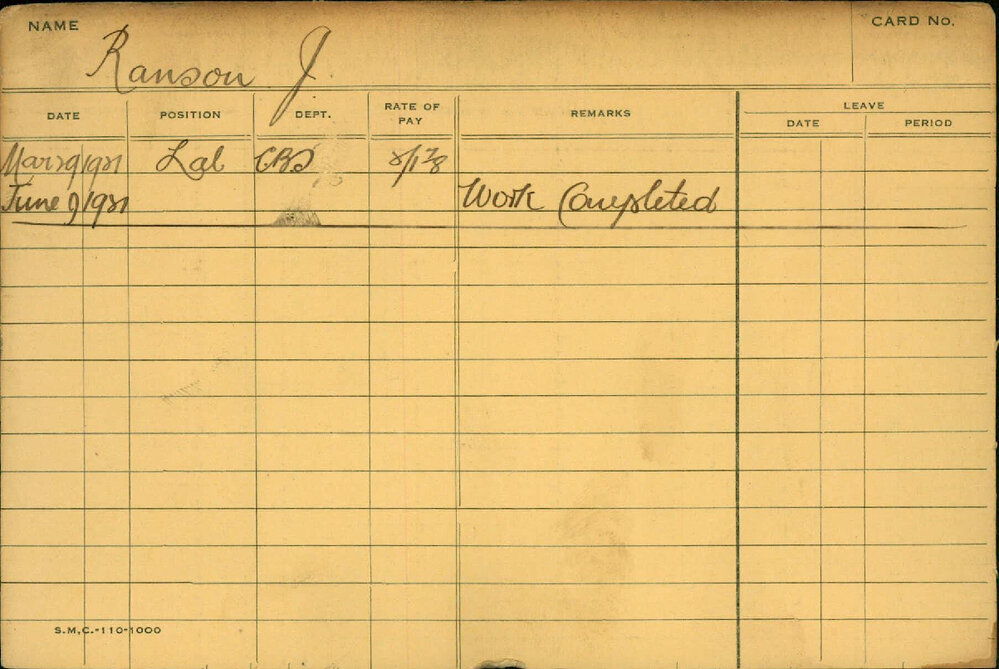 NAME CARD No.
Ranson J.
LEAVE
DATE POSITION DEPT. RATE OF PAY REMARKS DATE PERIOD
Mar 29 1921 Lab CBS
June 9 1921 Work Completed
S.M.C.-110-1000